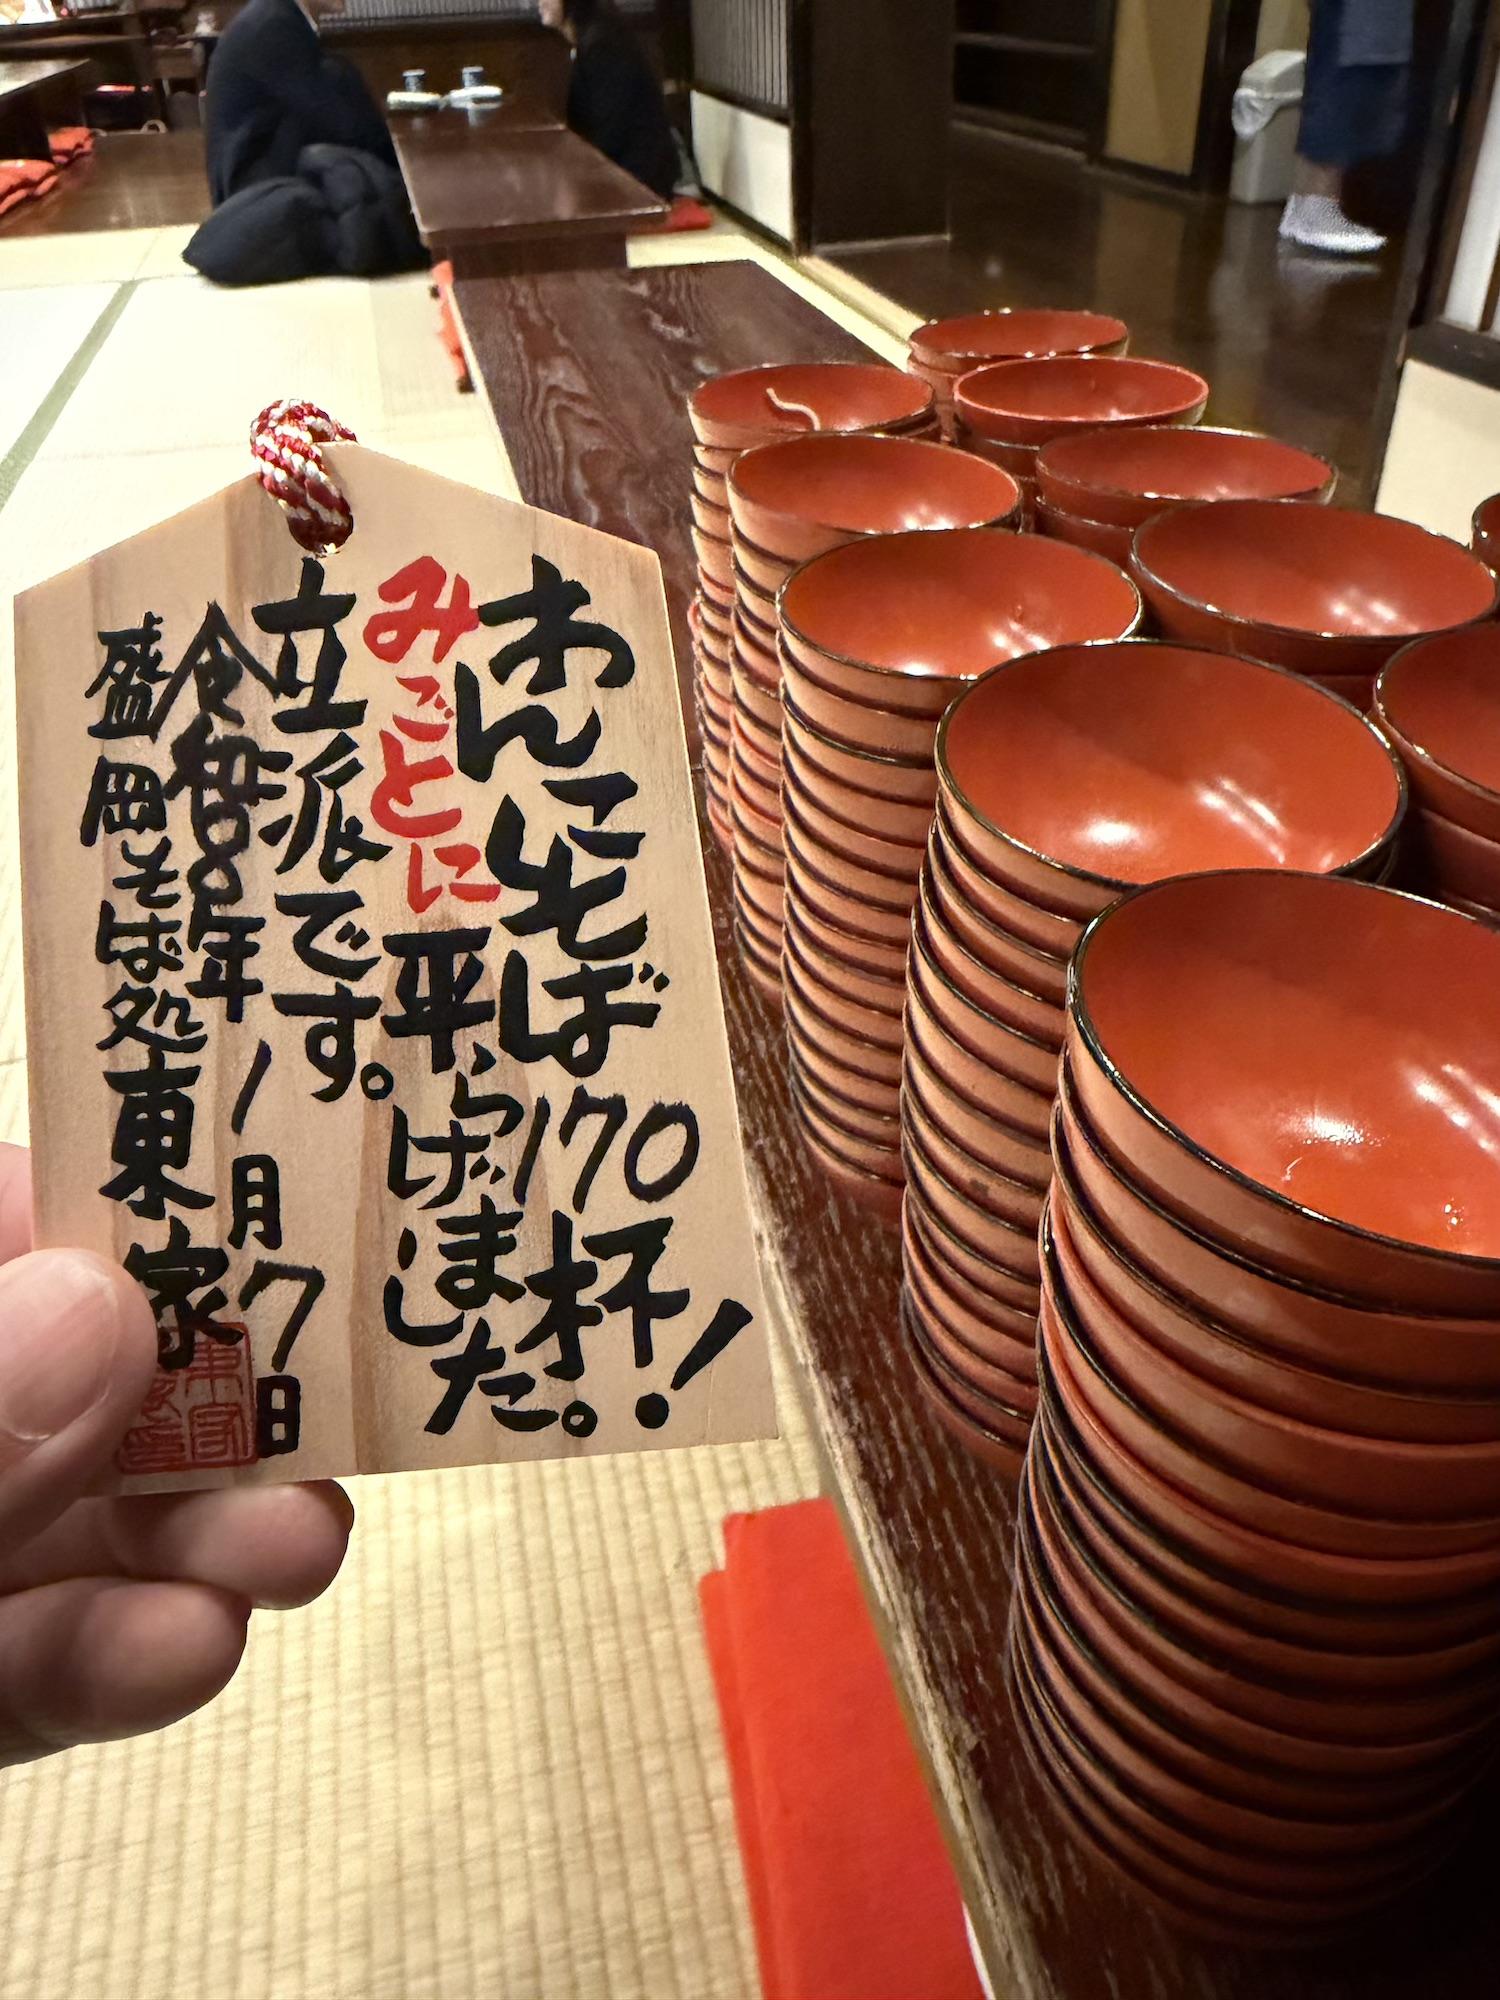 わんこそば170杯!
みごとに平らげました。
立派です。
令和8年1月7日
盛岡そば処東家